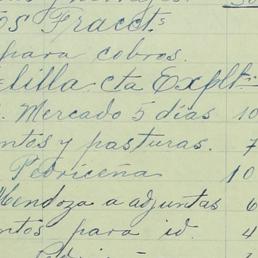 os Fracct.s
para cobros.
lilla cta Explt.
. Mercado 5 días 10
ntos y pasturas. 7
Pedriceña 10
Mendoza a adjuntas 6
ntos para id. 4